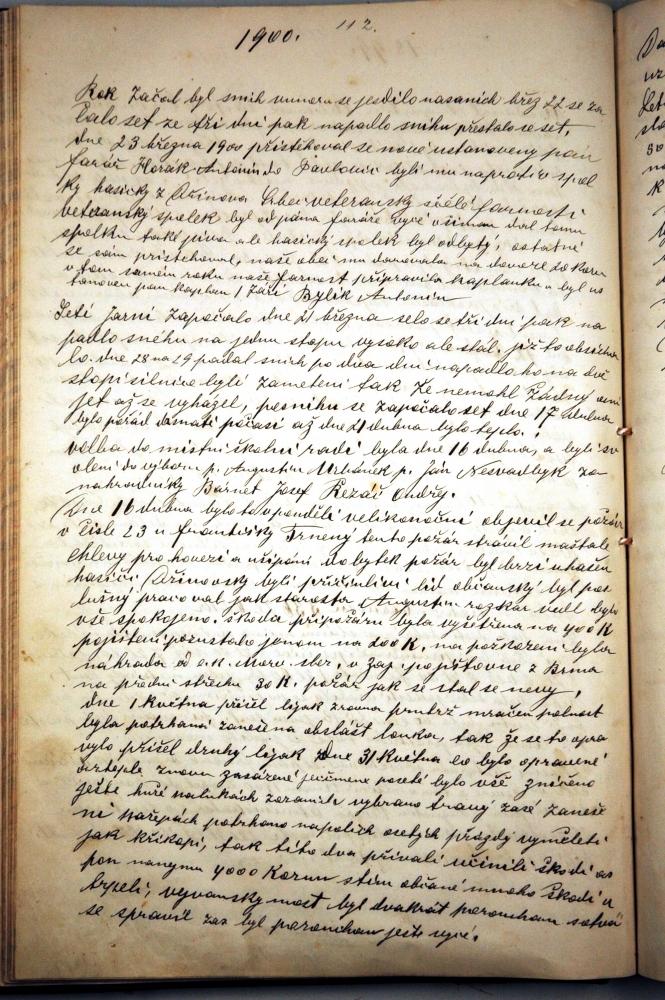 1900. 112.
Rok začal byl snih unnora se jesdilo nasanich březn 22 se za
čalo set ze tři dni pak napadlo snihu přestalo se set,
dne 23 března 1900 přistěhoval se nové ustanoveny pan
farář Horák Antonin do Pavlovic byli mu naproti spol
ky hasicky z Ořinova veteransky s celé farnosti
veteranský spolek byl od pána faráře všiman dal tomu
spolku také piva ale hasický spolek byl odbytý, ostatně
se sám přistěhoval, naše obec mu darovala na dovoze 20 korun
v tom samém roku naše farnost připravila kaplanku a byl us
tanoven pan kaplan 1 Září Bylik Antonin
Seti jarni započalo dne 21 března selo se tři dni pak na
padlo sněhu na jednu stopu vysoko ale stál. již to obsichn
lo. dne 28 na 29 padal snich po dva dni napadlo ho na dvě
stopi silnice byli zameteni tak že nemohl žádny ani
jet až se vyházel, po snihu se započalo set dne 17 dubna
bylo pořád počasi až dne 21 dubna bylo teplo.
volba do mistni školni radi byla dne 16 dubna, a byli zv
oleni do výboru p. Augustin Urbánek p. Ján Nesvadbyk za
nahradniky Barnet Josef Řezáč Ondřej.
Dne 16 dubna bylo to v ponděli velikonočni objevil se požár
v čisle 23 u Františky Trnený tento požár strávil maštale
chlevy pro hovezi a dobytek požár byl brzi uhašen
hasiči Ořinovsky byli přičinlivi lid občanský byl pos
lušný pracoval jak starosta Augustin rozkáz vedl bylo
vše spokojeno. škoda při požáru byla vyšetřena na 400 K
pojištení pozustalo jenom na 200 K. na poškozeni byla
náhrada od c.k. Morv. slez. v zaj. pojištovne z Brna
na předni střechu 30 K. požár jak se stal se nevy.
dne 1 Května přišel lijak zrovna prutrž mračen polnost
byla potrhaná zanešena obzlášt louka, tak že se to opra
vylo přišel druhý lijak dne 31 Května co bylo opravené
zreteple znova zasázené ječmene poseté bylo vše zničeno
ještě huř na lukách zoraniste vybrano travy zase zaneše
ni nařepách potrhano napolich osetych prázdý vymleti
jak přikopi, tak tito dva přivali učinili škodi as
pon nanejmn 4000 Korun stim občané mnoho škodi u
trpeli, vyvansky most byl dvakrát poroucham sotva
se spravil zas byl porouchan ješte vyce.